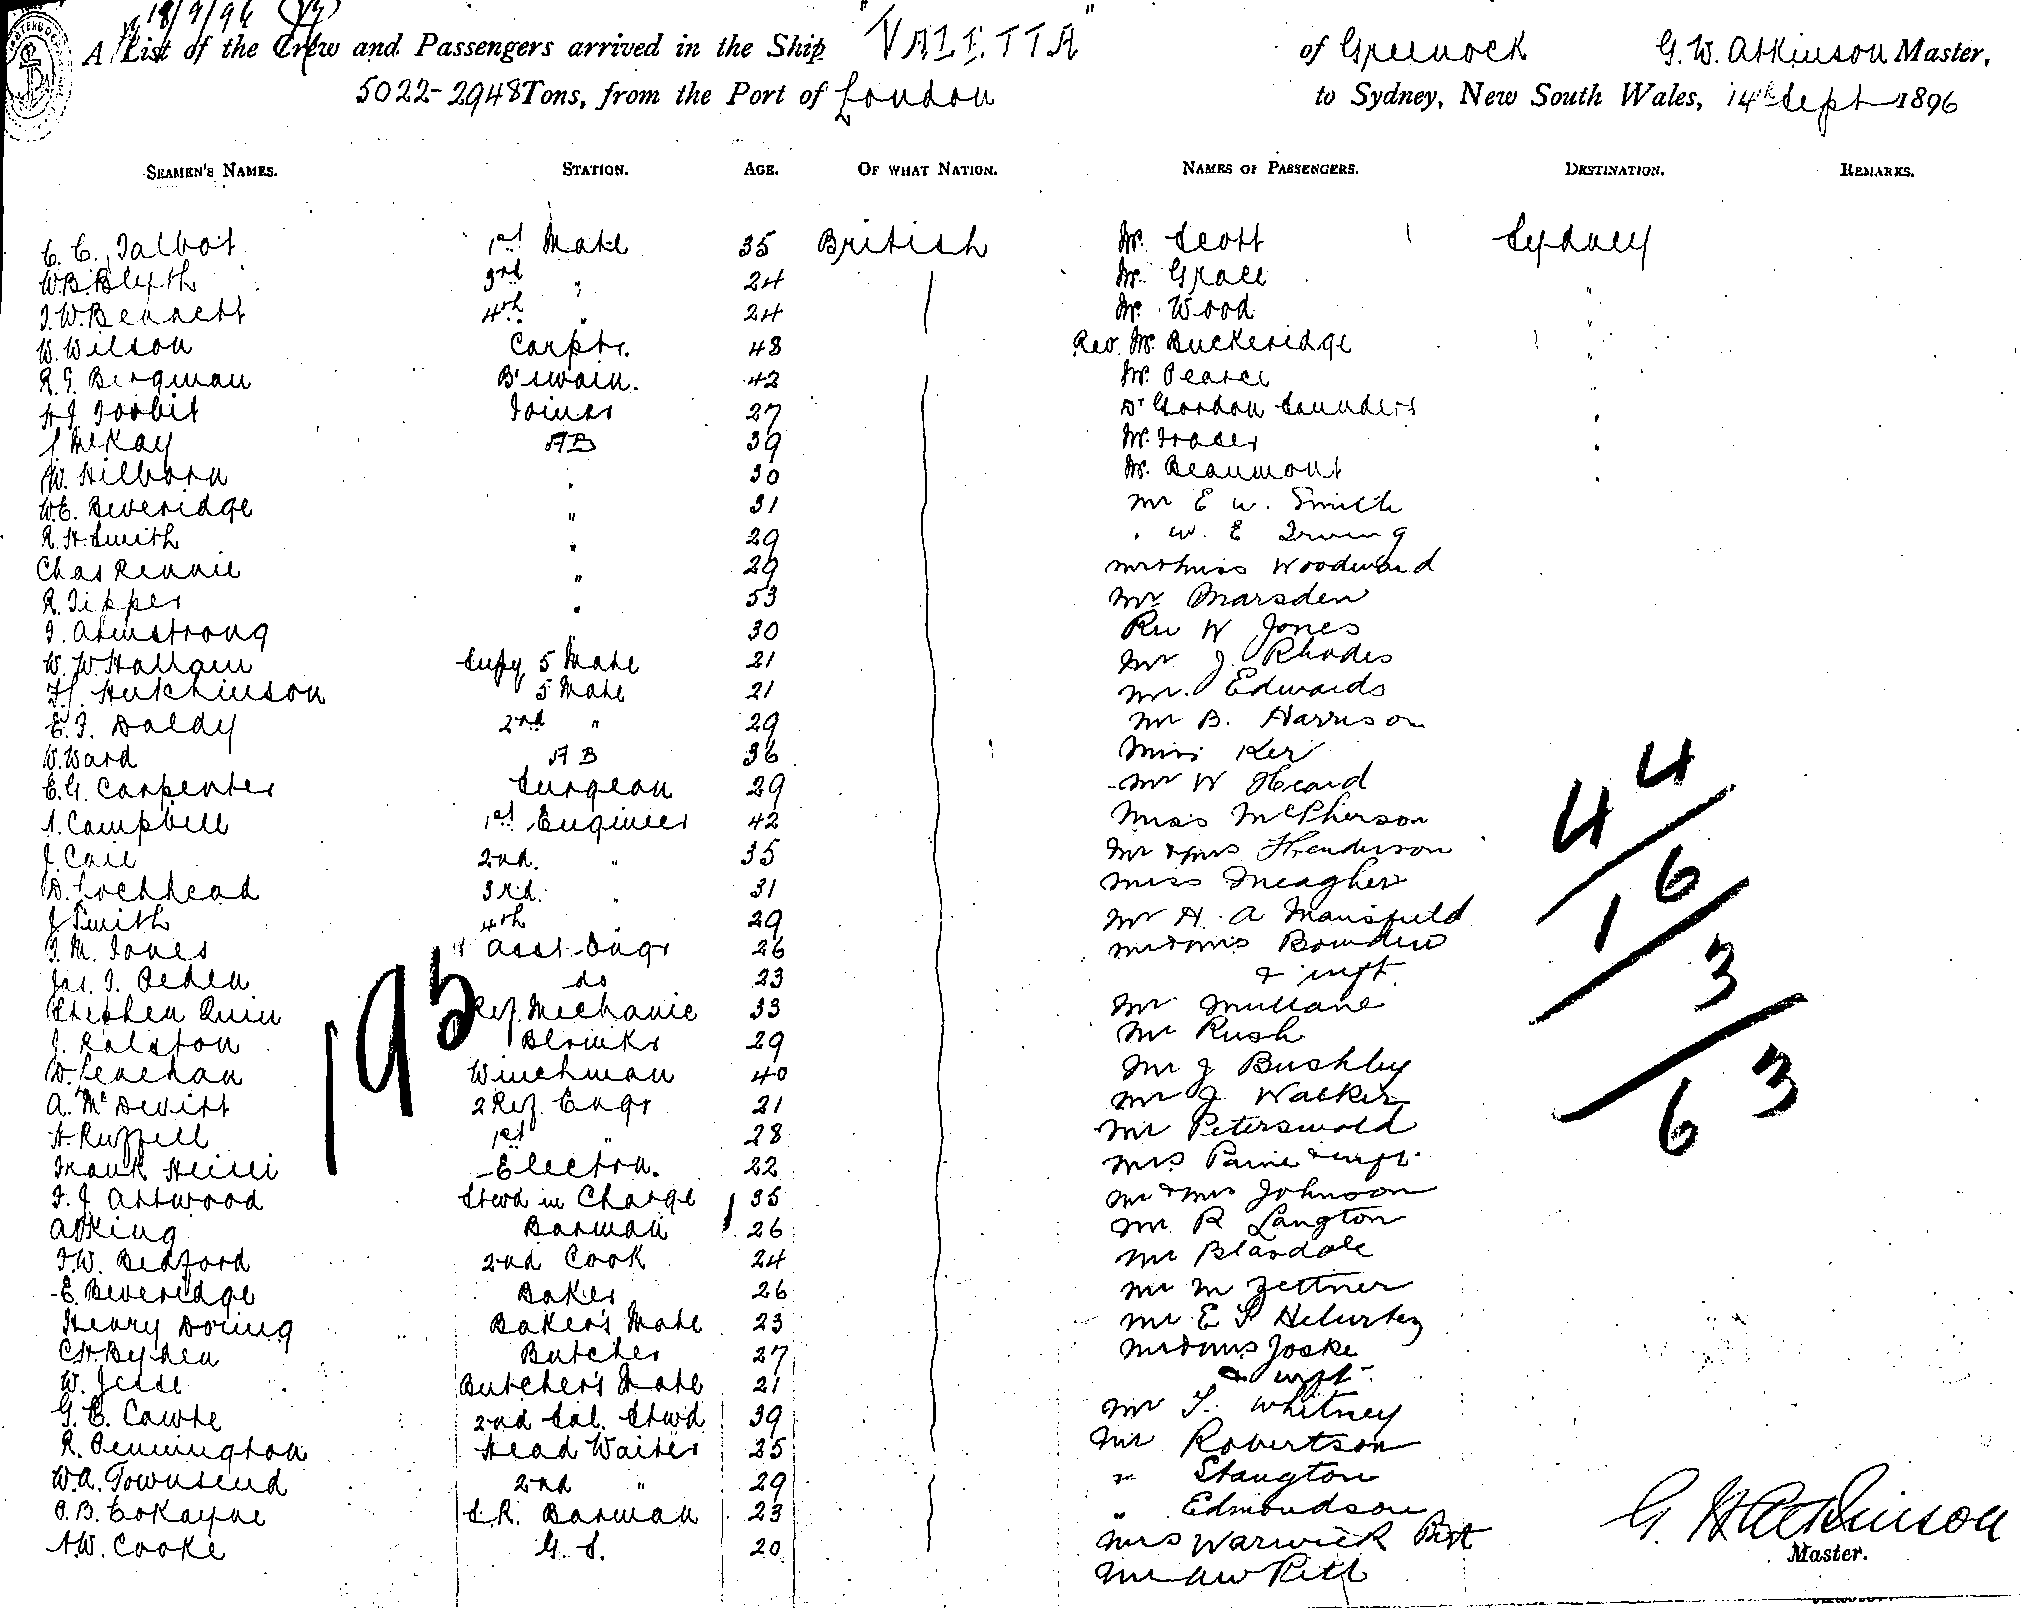 18/9/96
A List of the Crew and Passengers arrived in the Ship "VALETTA" of Greenock G. W. Atkinson Master,
5022-2948 Tons, from the Port of London to Sydney, New South Wales, 14th Sept 1896
SEAMEN'S NAMES. STATION. AGE. OF WHAT NATION. NAMES OF PASSENGERS. DESTINATION. REMARKS.
C. C. Talbot 1st Mate 35 British Mr. Scott Sydney
W.B. Blyth 3rd " 24 Mr. Grace "
J.W. Bennett 4th " 24 Mr. Wood "
W. Wilson Carptr. 48 Rev. Mr. Buckeridge "
R.G. Bergman B'swain. 42 Mr. Pearce
H.J. Joobit Joiner 27 Dr Gordon Saunders "
J. McKay AB 39 Mr. Fraser "
W. Hilborn " 30 Mr. Beaumont "
W.E. Beveridge " 31 Mr E W. Smith
R.H. Smith " 29 " W. E Irving
Chas Rennie " 29 Mr & Miss Woodward
R. Tipper " 53 Mr Marsden
J. Armstrong 30 Rev W Jones
W. W. Hallam Supy 5 Mate 21 Mr J. Rhodes
F.J. Hutchinson 5 Mate 21 Mr. Edwards
E. J. Daldy 2nd " 29 Mr B. Harrison
W. Ward AB 36 Miss Ker
E.G. Carpenter Surgeon 29 Mr W Heard
A. Campbell 1st Engineer 42 Miss McPherson
J. Cail 2nd. " 35 Mr & Mrs Henderson
D. Lochhead 3rd. " 31 Miss Meagher
J Smith 4th 29 Mr H. A Mansfield
J. M. Jones Asst Engr 26 Mr & Mrs Bowden
Jas. J. Peden do 23 & inft.
Stephen Quin Ref. Mechanic 33 Mr Mullane
J. Ralston 29 Mr Rush
D. Lenehan Winchman 40 Mr J Bushby
A. McDevitt 2 Ref. Engr 21 Mr J Walker
H. Russell 1st " 28 Mr Peterswald
Frank Electrn. 22 Mrs Paine & inft.
F. J. Attwood Stwd in Charge 35 Mr & Mrs Johnson
A. King Barman 26 Mr R Langton
F.W. Bedford 2nd Cook 24 Mr
E. Beveridge Baker 26 Mr M Zettner
Henry Doring Baker's Mate 23 Mr E S
C.H. Byhen Butcher 27 Mr & Mrs Joske
W. Jesse Butcher's Mate 21 & inft
G. E. Cawte 2nd Sal. Stwd 39 Mr T. Whitney
R. Pennington Head Waiter 25 Mr Robertson
W.A. Townsend 2nd " 29 " Stangton
P. B. Cokayne S.R. Barman 23 " Edmondson
A.W. Cooke G. S. 20 Mrs Warwick
Mr AW Pitt
195
44
16
3
63
G W Atkinson
Master.